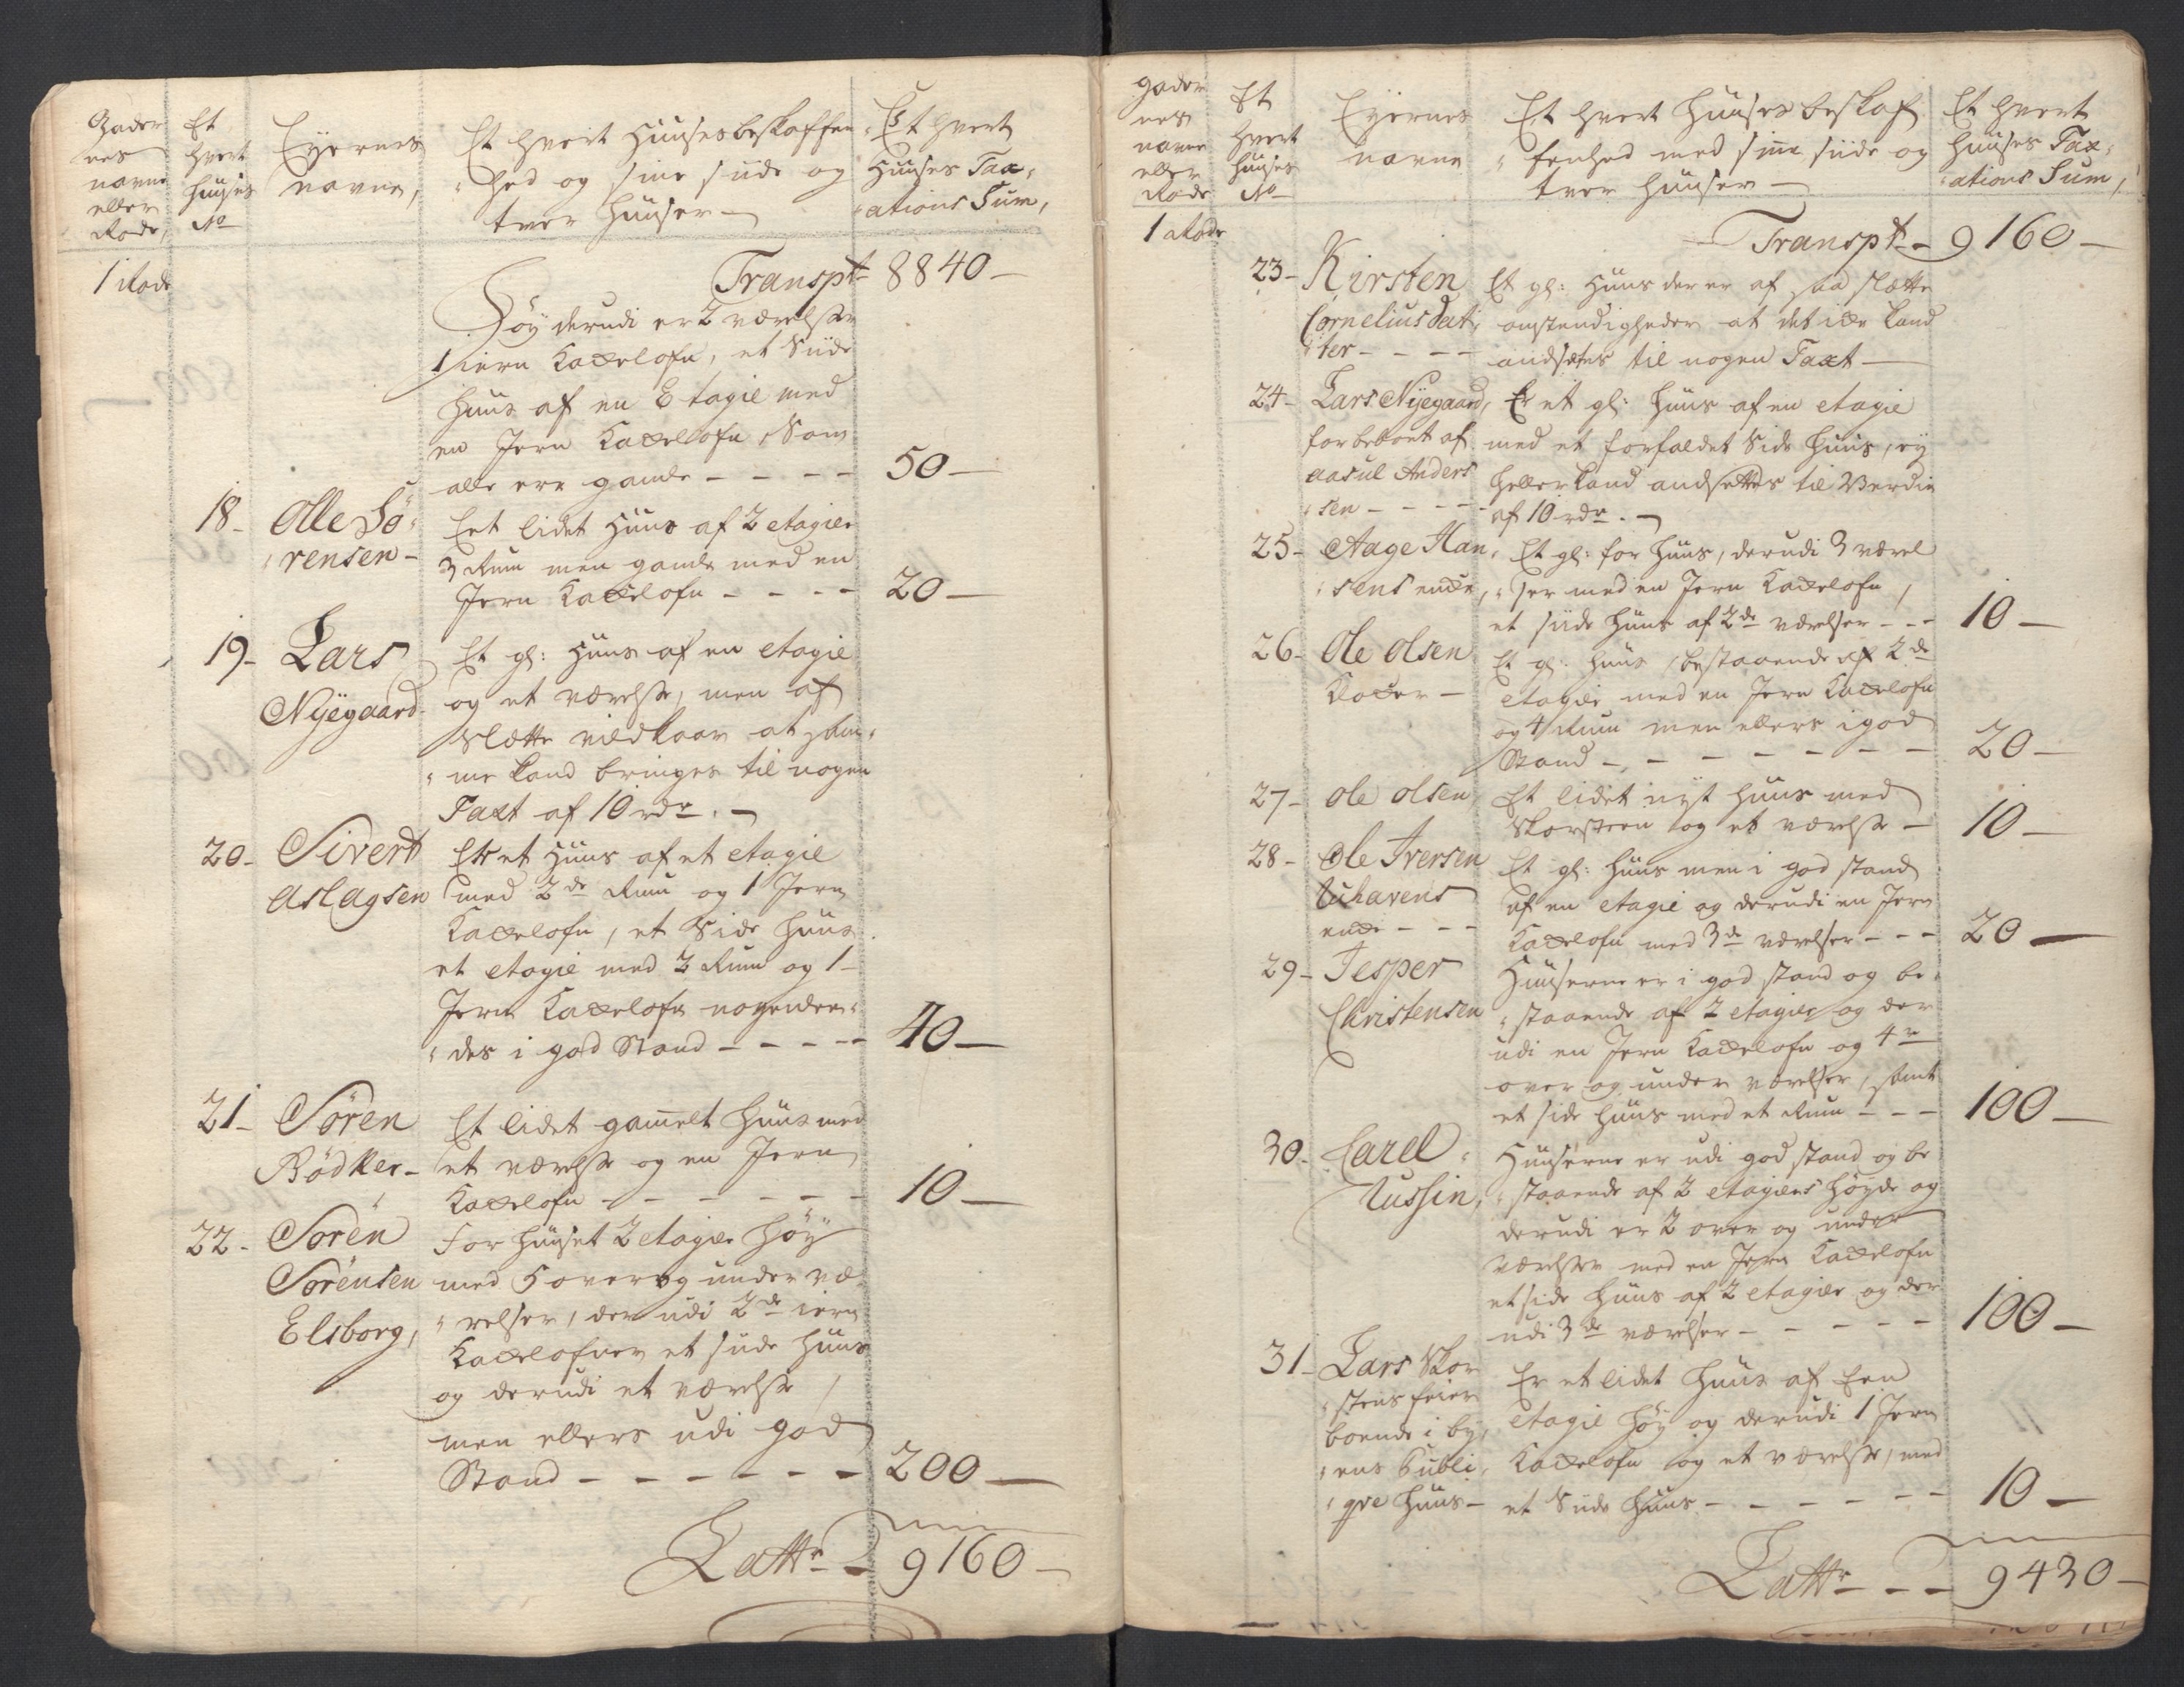 Gader
nes
navne
eller
Rode,
Et
hvert
Huuses
No
Eyernes
navne,
Et hvert Huuses beskaffen
hed og sine siide og
tver Huuser -
Et hvert
Huuses Tax,
ations Sum,
1 Rode
Transpt 8840 -
Høy derudi er 2 værelser
1 iern Kackelofn, et Siide
Huus af en Etagie med
en Jern Kackellofn, Som
alle ere gamle - - - - 50 -
18 - Olle Sö,
rensen -
Eet lidet Huus af 2 etagier
3 Rum men gamle med en
Jern Kackelofn - - - - 20 -
19 - Lars
Nÿegaard
Et gl: Huus af en etagie
og et værelse, men af
Slætte vilkaar at sam,
me kand bringes til nogen
Taxt af 10 rdr. -
20 - Sivert
Aslagsen
Er et Huus af et etagie
med 2de Rum og 1 Jern
Kackelofn, et Side Huus
et etagie med 2 Rum og 1 -
Jern Kackelofn nogenden,
des i god Stand - - - - - 40 -
21 - Sören
Bödker -
Et lidet gamelt Huus med
et værelse og en Jern
Kackelofn - - - - - - 10 -
22 - Sören
Sörensen
Elsborg,
For Huuset 2 etagier høÿ
med 5 over og under væ,
relser, der udi 2de iern
Kackelofner et side Huus
og derudi et værelse,
men ellers udi god
Stand - - - - - - 200 -
Latr - 9160 -
Gader
nes
navne
eller
Rode
Et
hvert
Huuses
No
Eÿernes
navne
Et hvert Huuses beskaf
fenhed med sine siide og
tver Huuser -
Et hvert
Huuses Tax,
ations Sum,
1 Rode
Transpt - 9160 -
23 - Kirsten
Cornelius dat,
ter - - - -
Et gl: Huus der er af saa slætte
omstendigheder at det icke kand
andsætes til nogen Taxt -
24 - Lars Nÿegaard,
for beboet af
Aasul Anders
sen - - - -
Er et gl: Huus af en etagie
med et forfaldet Side Huus, eÿ
heller kand andsettes til Verdie
af 10 rdr. -
25 - Aage Han,
sens encke,
Et gl: for Huus, derudi 3 værel
ser med en Jern Kackelofn,
et siide Huus af 2de værelser - - - 10 -
26 - Ole Olsen
Klocker -
Et gl: Huus, bestaaende af 2de
etagier med en Jern Kackelofn
og 4 Rum men ellers i god
Stand - - - - - - - 20 -
27 - Ole Olsen
Et lidet nÿt Huus med
Skorsteen og et værelse - 10 -
28 - Ole Iversen
Uhavens
encke - - -
Et gl: Huus men i god stand
af en etagie og derudi en Jern
Kackelofn med 3de værelser - - - 20 -
29 - Jesper
Christensen
Huuserne er i god stand og be,
staaende af 2 etagier og der
udi en Jern Kackelofn og 4re
over og under værelser, samt
et side Huus med et Rum - - - 100 -
30 - Carel
Tussin,
Huuserne er udi god stand og be
staaende af 2 etagiers høÿde og
derudi er 2 over og under
værelser med en Jern Kackelofn
et side Huus af 2 etagier og der
udi 3de værelser - - - - - 100 -
31 - Lars Skor
stens feier
boende i bÿ,
ens Publi,
qve Huus -
Er et lidet Huus af Een
etagie høÿ og derudi 1 Jern
Kackelofn og et værelse, med
et Siide Huus - - - - - - 10 -
Latr - - - 9430 -